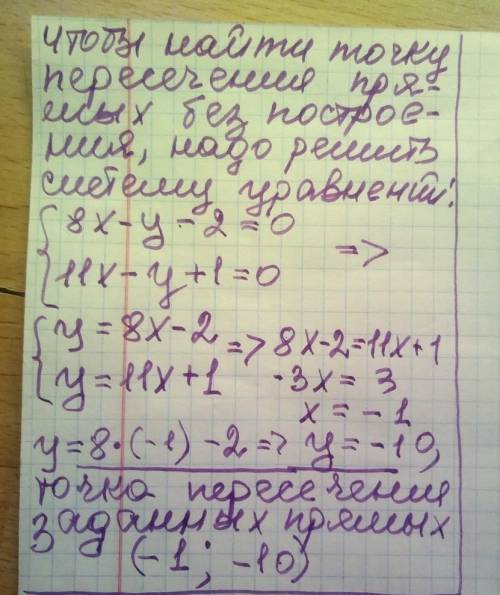 чтобы найти точку
пересечения пря-
мых без построе-
ния, надо решить
систему уравнений:
8x-y-2=0
=>
11x-y+1=0
y=8x-2
=> 8x-2=11x+1
y=11x+1 -3x=3
x=-1
y=8·(-1)-2=> y=-10,
точка пересечения
заданных прямых
(-1; -10)